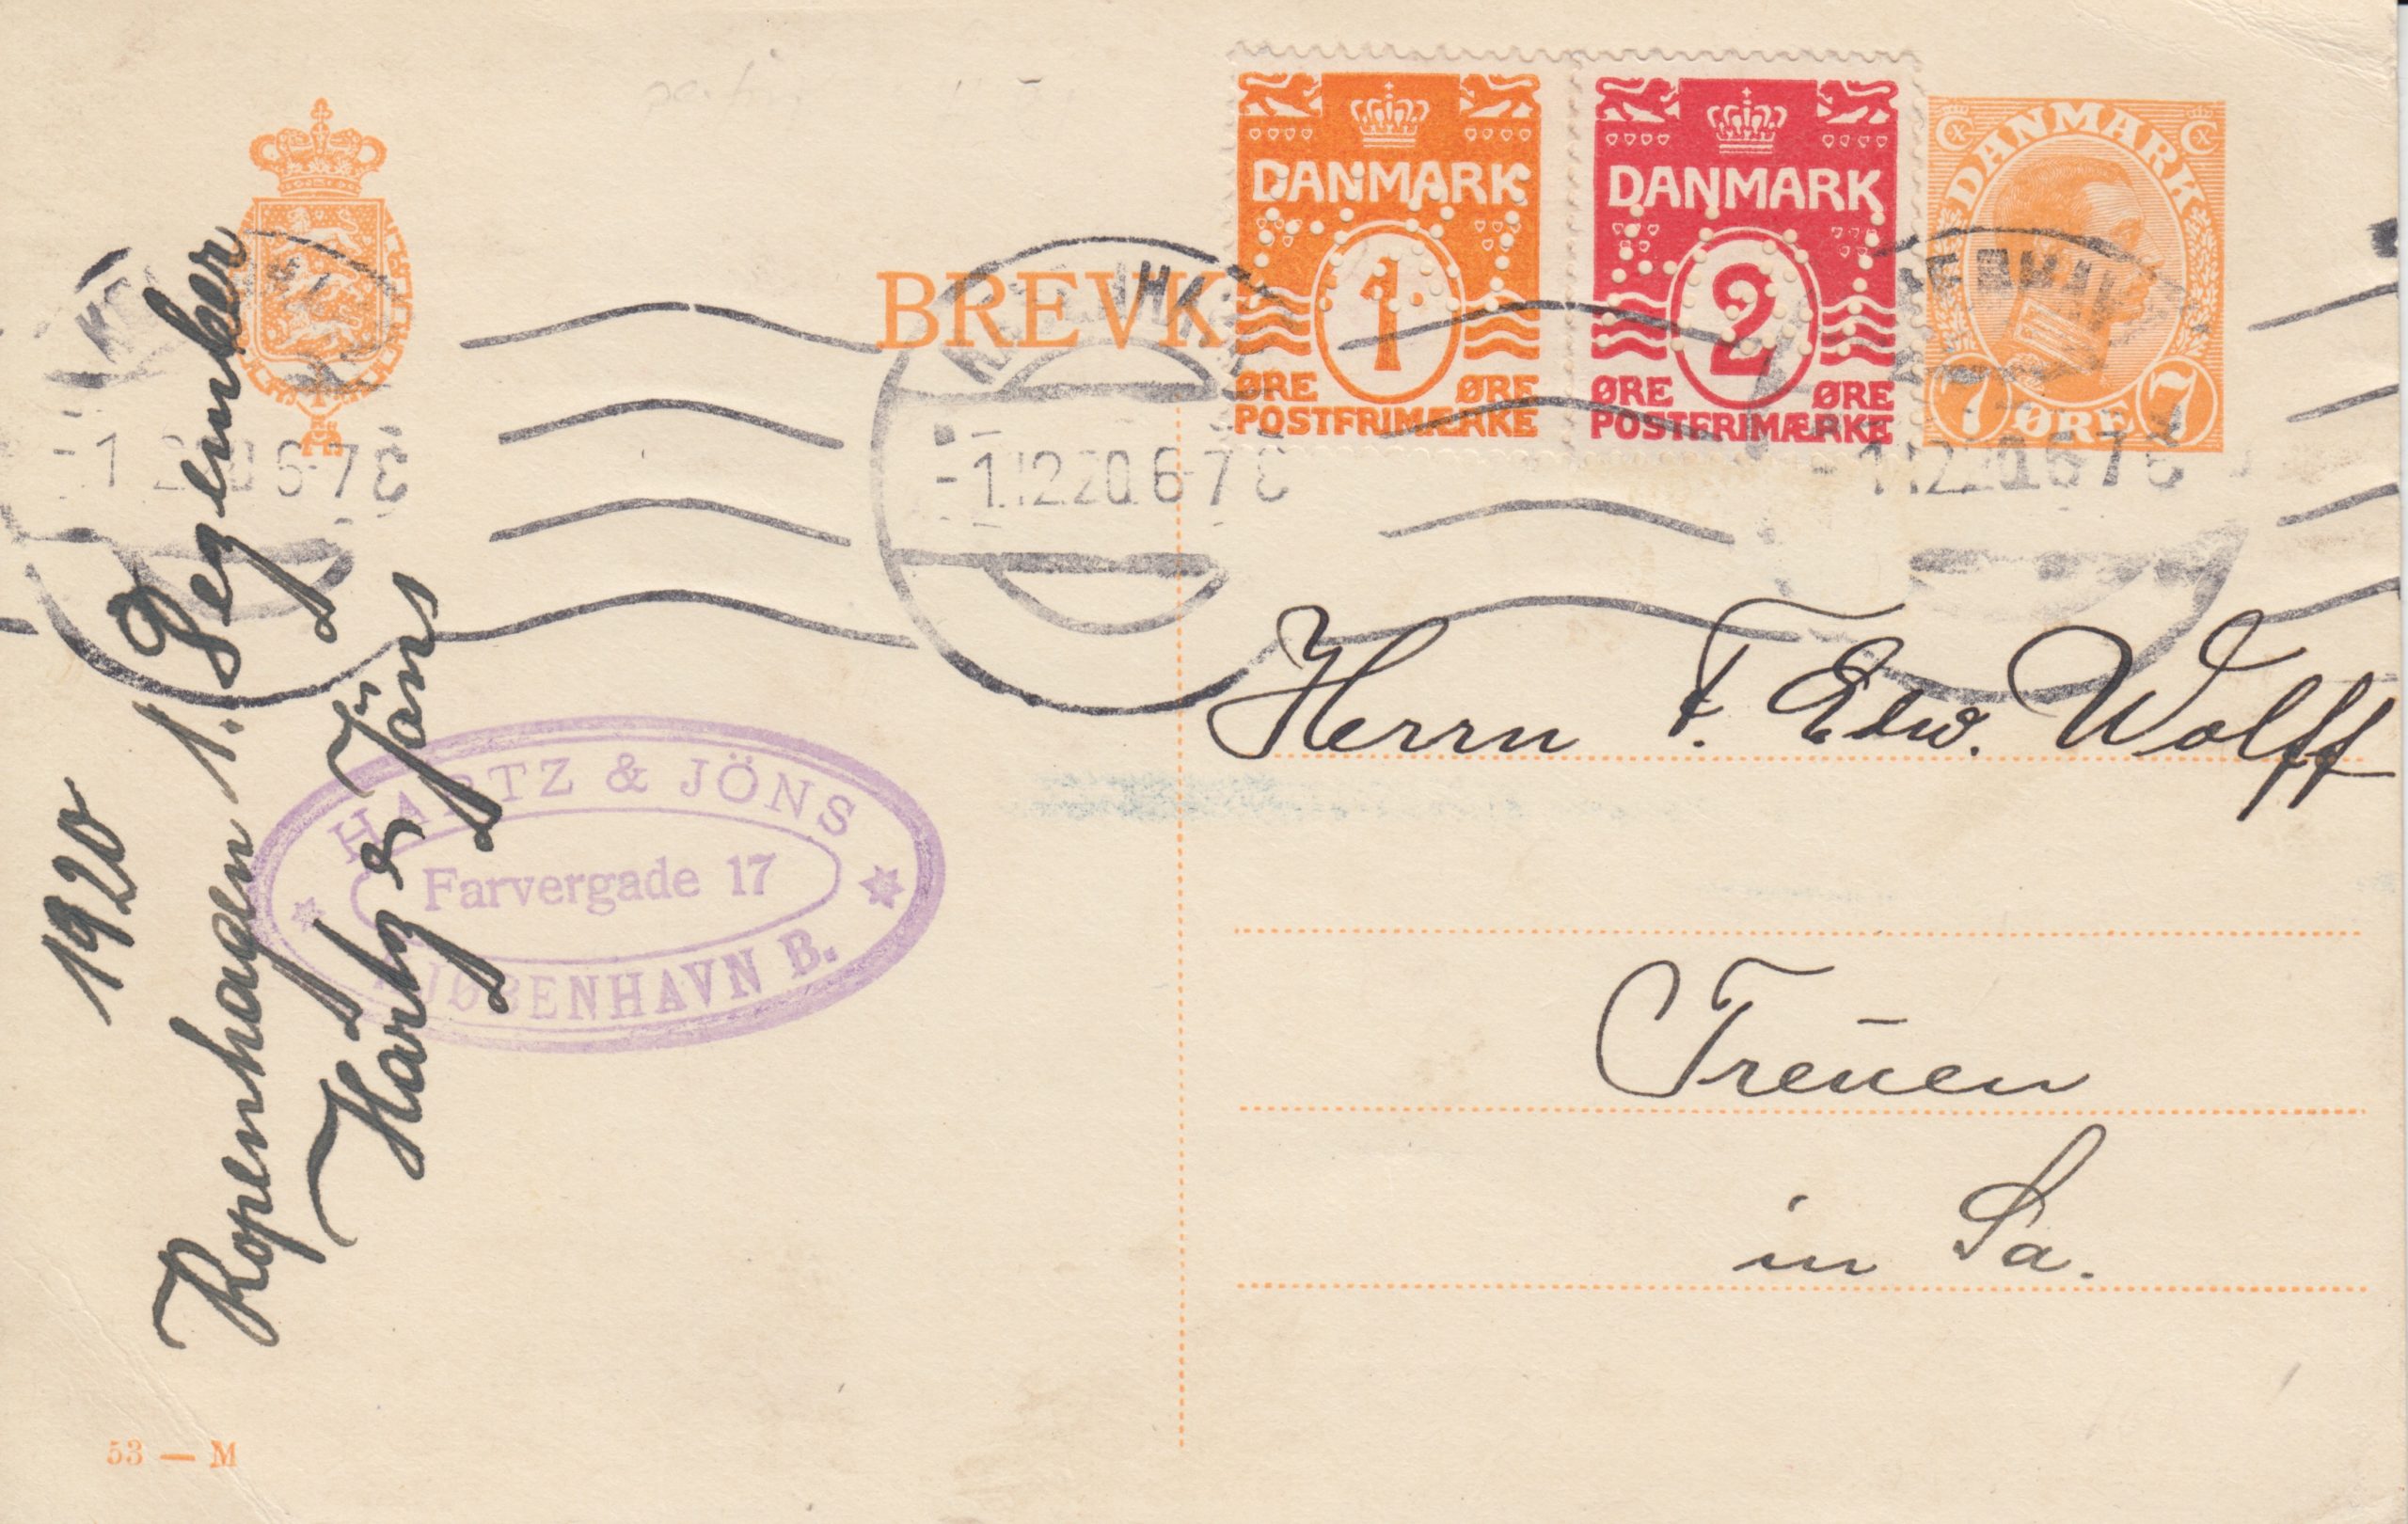 BREVK
DANMARK
1
ØRE ØRE
POSTFRIMÆRKE
DANMARK
2
ØRE ØRE
POSTFRIMÆRKE
DANMARK
7 ØRE 7
-1.12.20.6-7
-1.12.20.6-7
1920
Kopenhagen 1. Dezember
Hartz & Jöns
HARTZ & JÖNS
Farvergade 17
KJØBENHAVN B.
Herrn F. Edw. Wolff
Treuen
in Sa.
53 — M